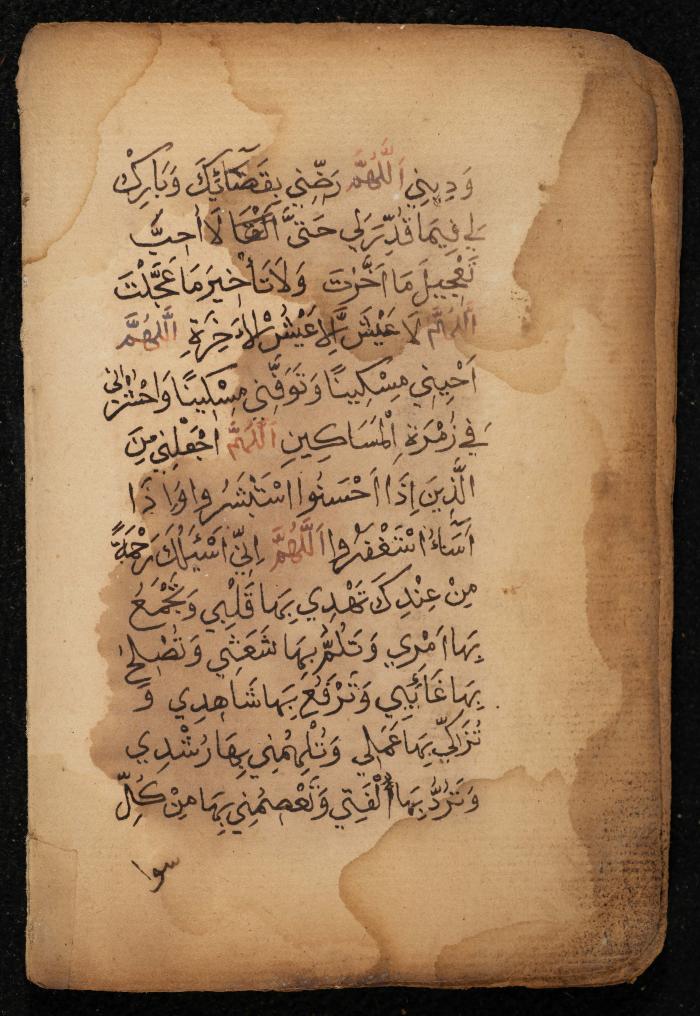 وَدِينِي اَللَّهُمَّ رَضِّنِي بِقَضَآئِكَ وَبَارِكْ
لِي فِيمَا قُدِّرَ لِي حَتَّى اَلْقَا لَا اُحِبُّ
تَعْجِيلَ مَا اَخَّرْتَ وَلَا تَأْخِيرَ مَا عَجَّلْتَ
اَللَّهُمَّ لَا عَيْشَ إِلَّا عَيْشُ الْاٰخِرَةِ اَللَّهُمَّ
اَحْيِنِي مِسْكِينًا وَتَوَفَّنِي مِسْكِينًا وَاحْشُرْنِي
فِي زُمْرَةِ الْمَسَاكِينِ اَللَّهُمَّ اجْعَلْنِي مِنَ
الَّذِينَ اِذَا اَحْسَنُوا اسْتَبْشَرُوا وَاِذَا
اَسَآءُ اسْتَغْفَرُوا اَللَّهُمَّ اِنِّي اَسْئَلُكَ رَحْمَةً
مِنْ عِنْدِكَ تَهْدِي بِهَا قَلْبِي وَتَجْمَعُ
بِهَا اَمْرِي وَتَلُمُّ بِهَا شَعَثِي وَتُصْلِحُ
بِهَا غَائِبِي وَتَرْفَعُ بِهَا شَاهِدِي وَ
تُزَكِّي بِهَا عَمَلِي وَتُلْهِمُنِي بِهَا رُشْدِي
وَتَرُدُّ بِهَا اُلْفَتِي وَتَعْصِمُنِي بِهَا مِنْ كُلِّ
سوا